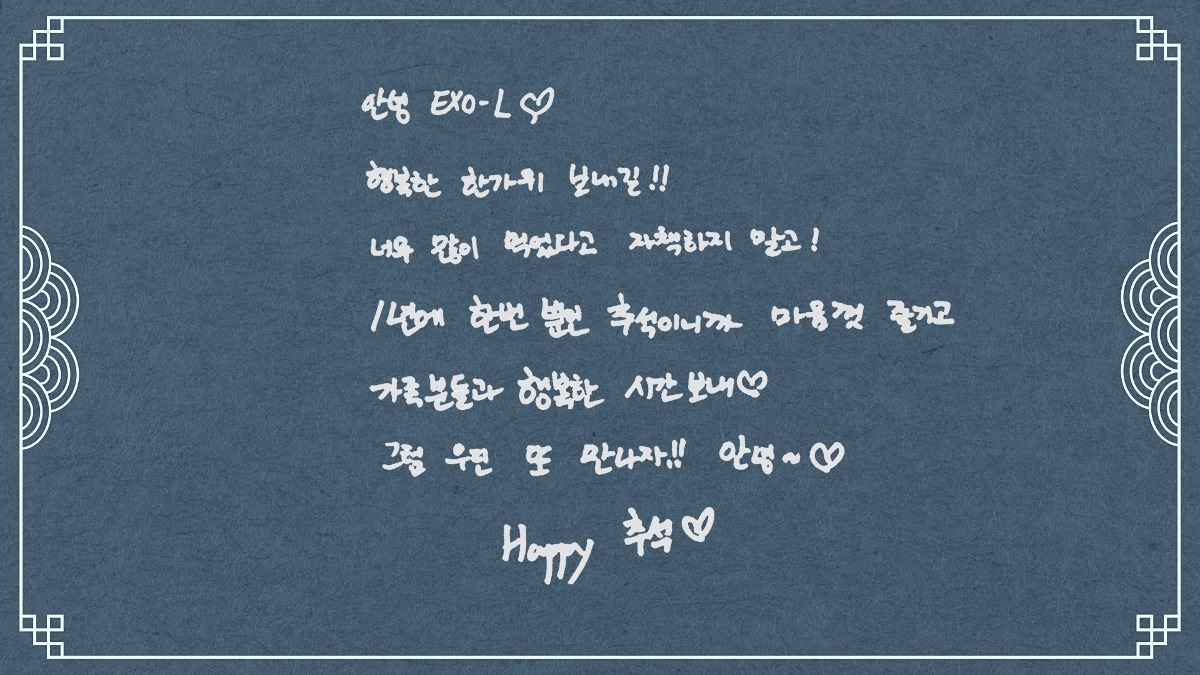 안녕 EXO-L♡
행복한 한가위 보내길!!
너무 많이 먹었다고 자책하지 말고!
1년에 한번 뿐인 추석이니까 마음껏 즐기고
가족분들과 행복한 시간 보내♡
그럼 우린 또 만나자!! 안녕~♡
Happy 추석♡